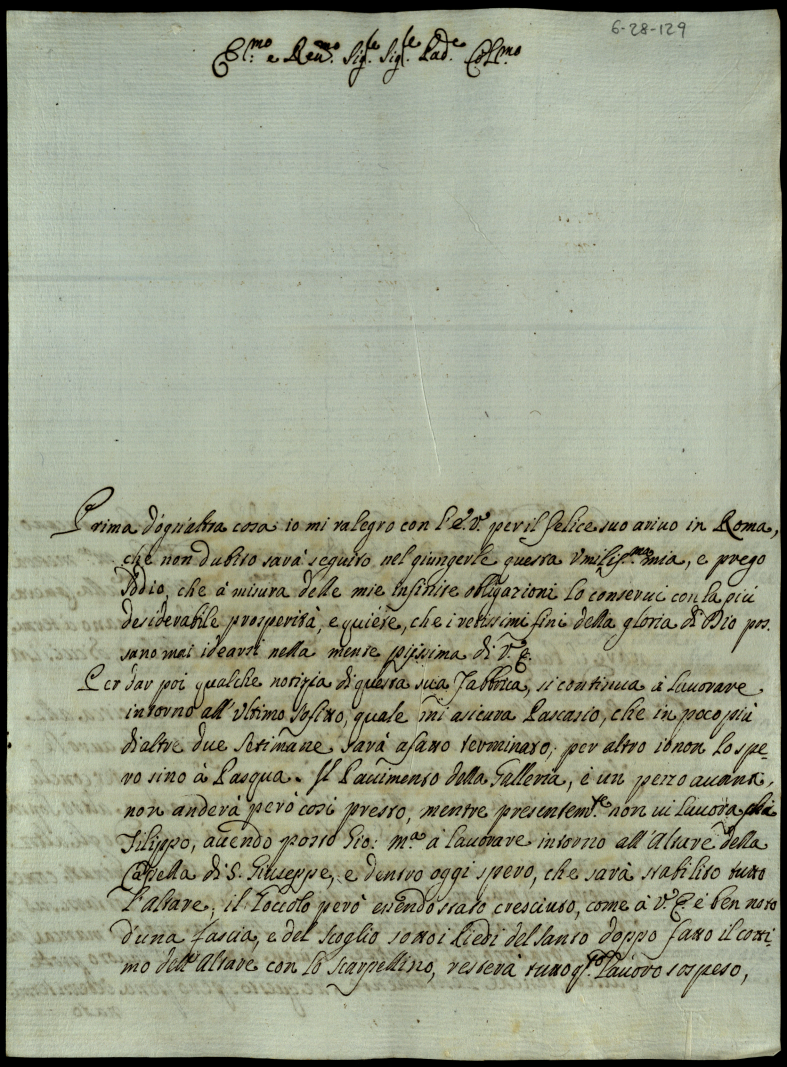 6-28-129
Em:mo e Reu:mo Sig:re Sig:re Pad:e Col:mo
Prima d'ogn'altra cosa io mi ralegro con l'E.V. per il felice suo ariuo in Roma,
che non dubito sarà seguito nel giungerle questa Vmiliss:ma mia, e prego
Iddio, che à misura delle mie infinite obligazioni lo conserui con la più
desiderabile prosperità, e quiete, che i uerissimi fini della gloria di Dio pos-
sano mai idearsi nella mente pijssima di V.E.
Per dar poi qualche notizia di questa sua Fabbrica, si continua à lauorare
intorno all'Vltimo sofitto, quale mi asicura Pascasio, che in poco più
di altre due Setimane sarà afatto terminato, per altro io non lo spe-
ro sino à Pasqua. Il Pauimento della Galleria, è un pezzo auanti,
non anderà però così presto, mentre presentem:te non ui lauora che
Filippo, auendo posto Gio: m:a à lauorare intorno all'Altare della
Capella di S. Giuseppe, e dentro oggi spero, che sarà stabilito tutto
l'altare; il Zoccolo però essendo stato cresciuto, come à V.E. è ben noto
d'una fascia, e del scoglio sotto i Piedi del Santo doppo fatto il cotti-
mo dell'Altare con lo Scarpellino, resterà tutto q:to lauoro sospeso,